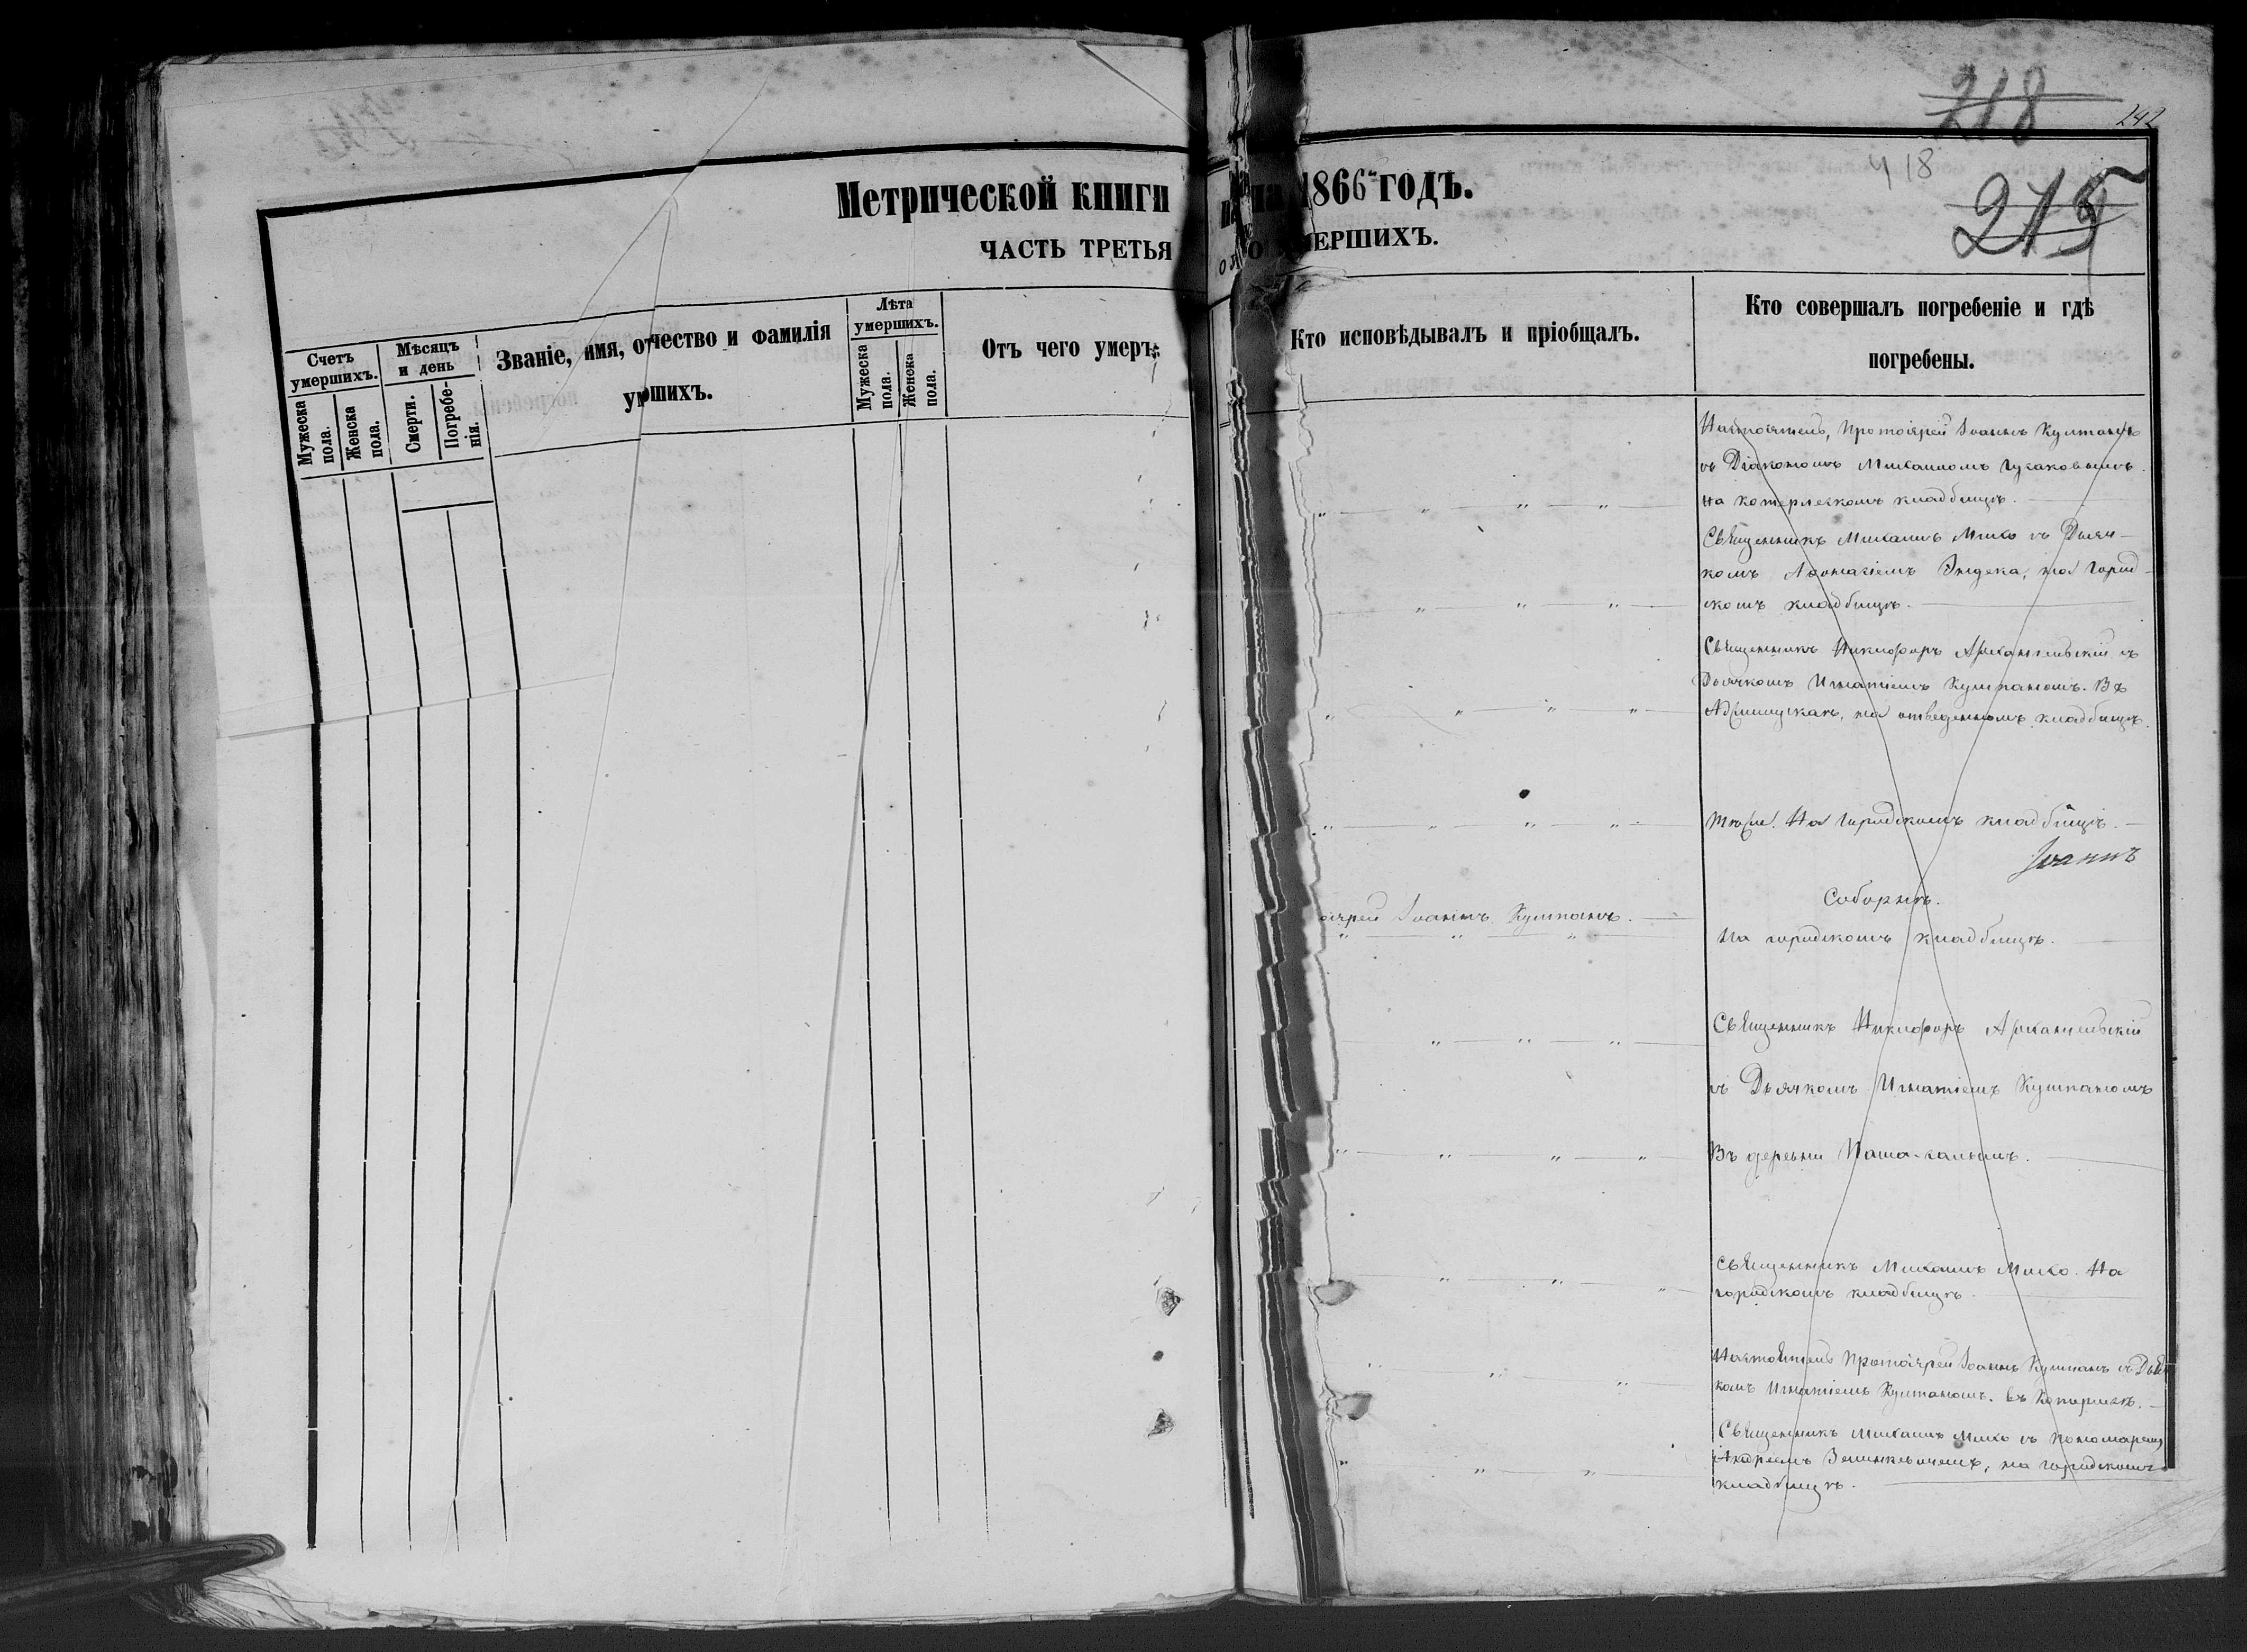 218
242
418
215
Метрической книги на 1866 годъ.
ЧАСТЬ ТРЕТЬЯ О УМЕРШИХЪ.
Счетъ умершихъ.
Мужеска пола.
Женска пола.
Мѣсяцъ и день
Смерти.
Погребенія.
Званіе, имя, отчество и фамилія
умршихъ.
Лѣта умершихъ.
Мужеска пола.
Женска пола.
Отъ чего умеръ.
Кто исповѣдывалъ и пріобщалъ.
Кто совершалъ погребеніе и гдѣ
погребены.
Настоятель, Протоіерей Іоаннъ Култанъ
съ Діакономъ Михаиломъ
на котерлезкомъ кладбищѣ.
Священникъ Михаилъ Мико съ Дьяч-
комъ на город-
скомъ кладбищѣ.
Священникъ Никифоръ Архангельскій съ
Дьячкомъ Игнатіемъ Кулпаномъ. Въ
на отведенномъ кладбищѣ.
Тоже. На городскомъ кладбищѣ.
Іоаннъ
Соборнѣ.
ерей Іоаннъ Кулпанъ.
На городскомъ кладбищѣ.
Священникъ Никифоръ Архангельскій
съ Дьячкомъ Игнатіемъ Кулпаномъ
Въ деревни
Священникъ Михаилъ Мико. На
городскомъ кладбищѣ.
Настоятель Протоіерей Іоаннъ Кулпанъ съ Дьяч
комъ Игнатіемъ Кулпаномъ. въ
Священникъ Михаилъ Мико съ Пономаремъ
Андреемъ на городскомъ
кладбищѣ.